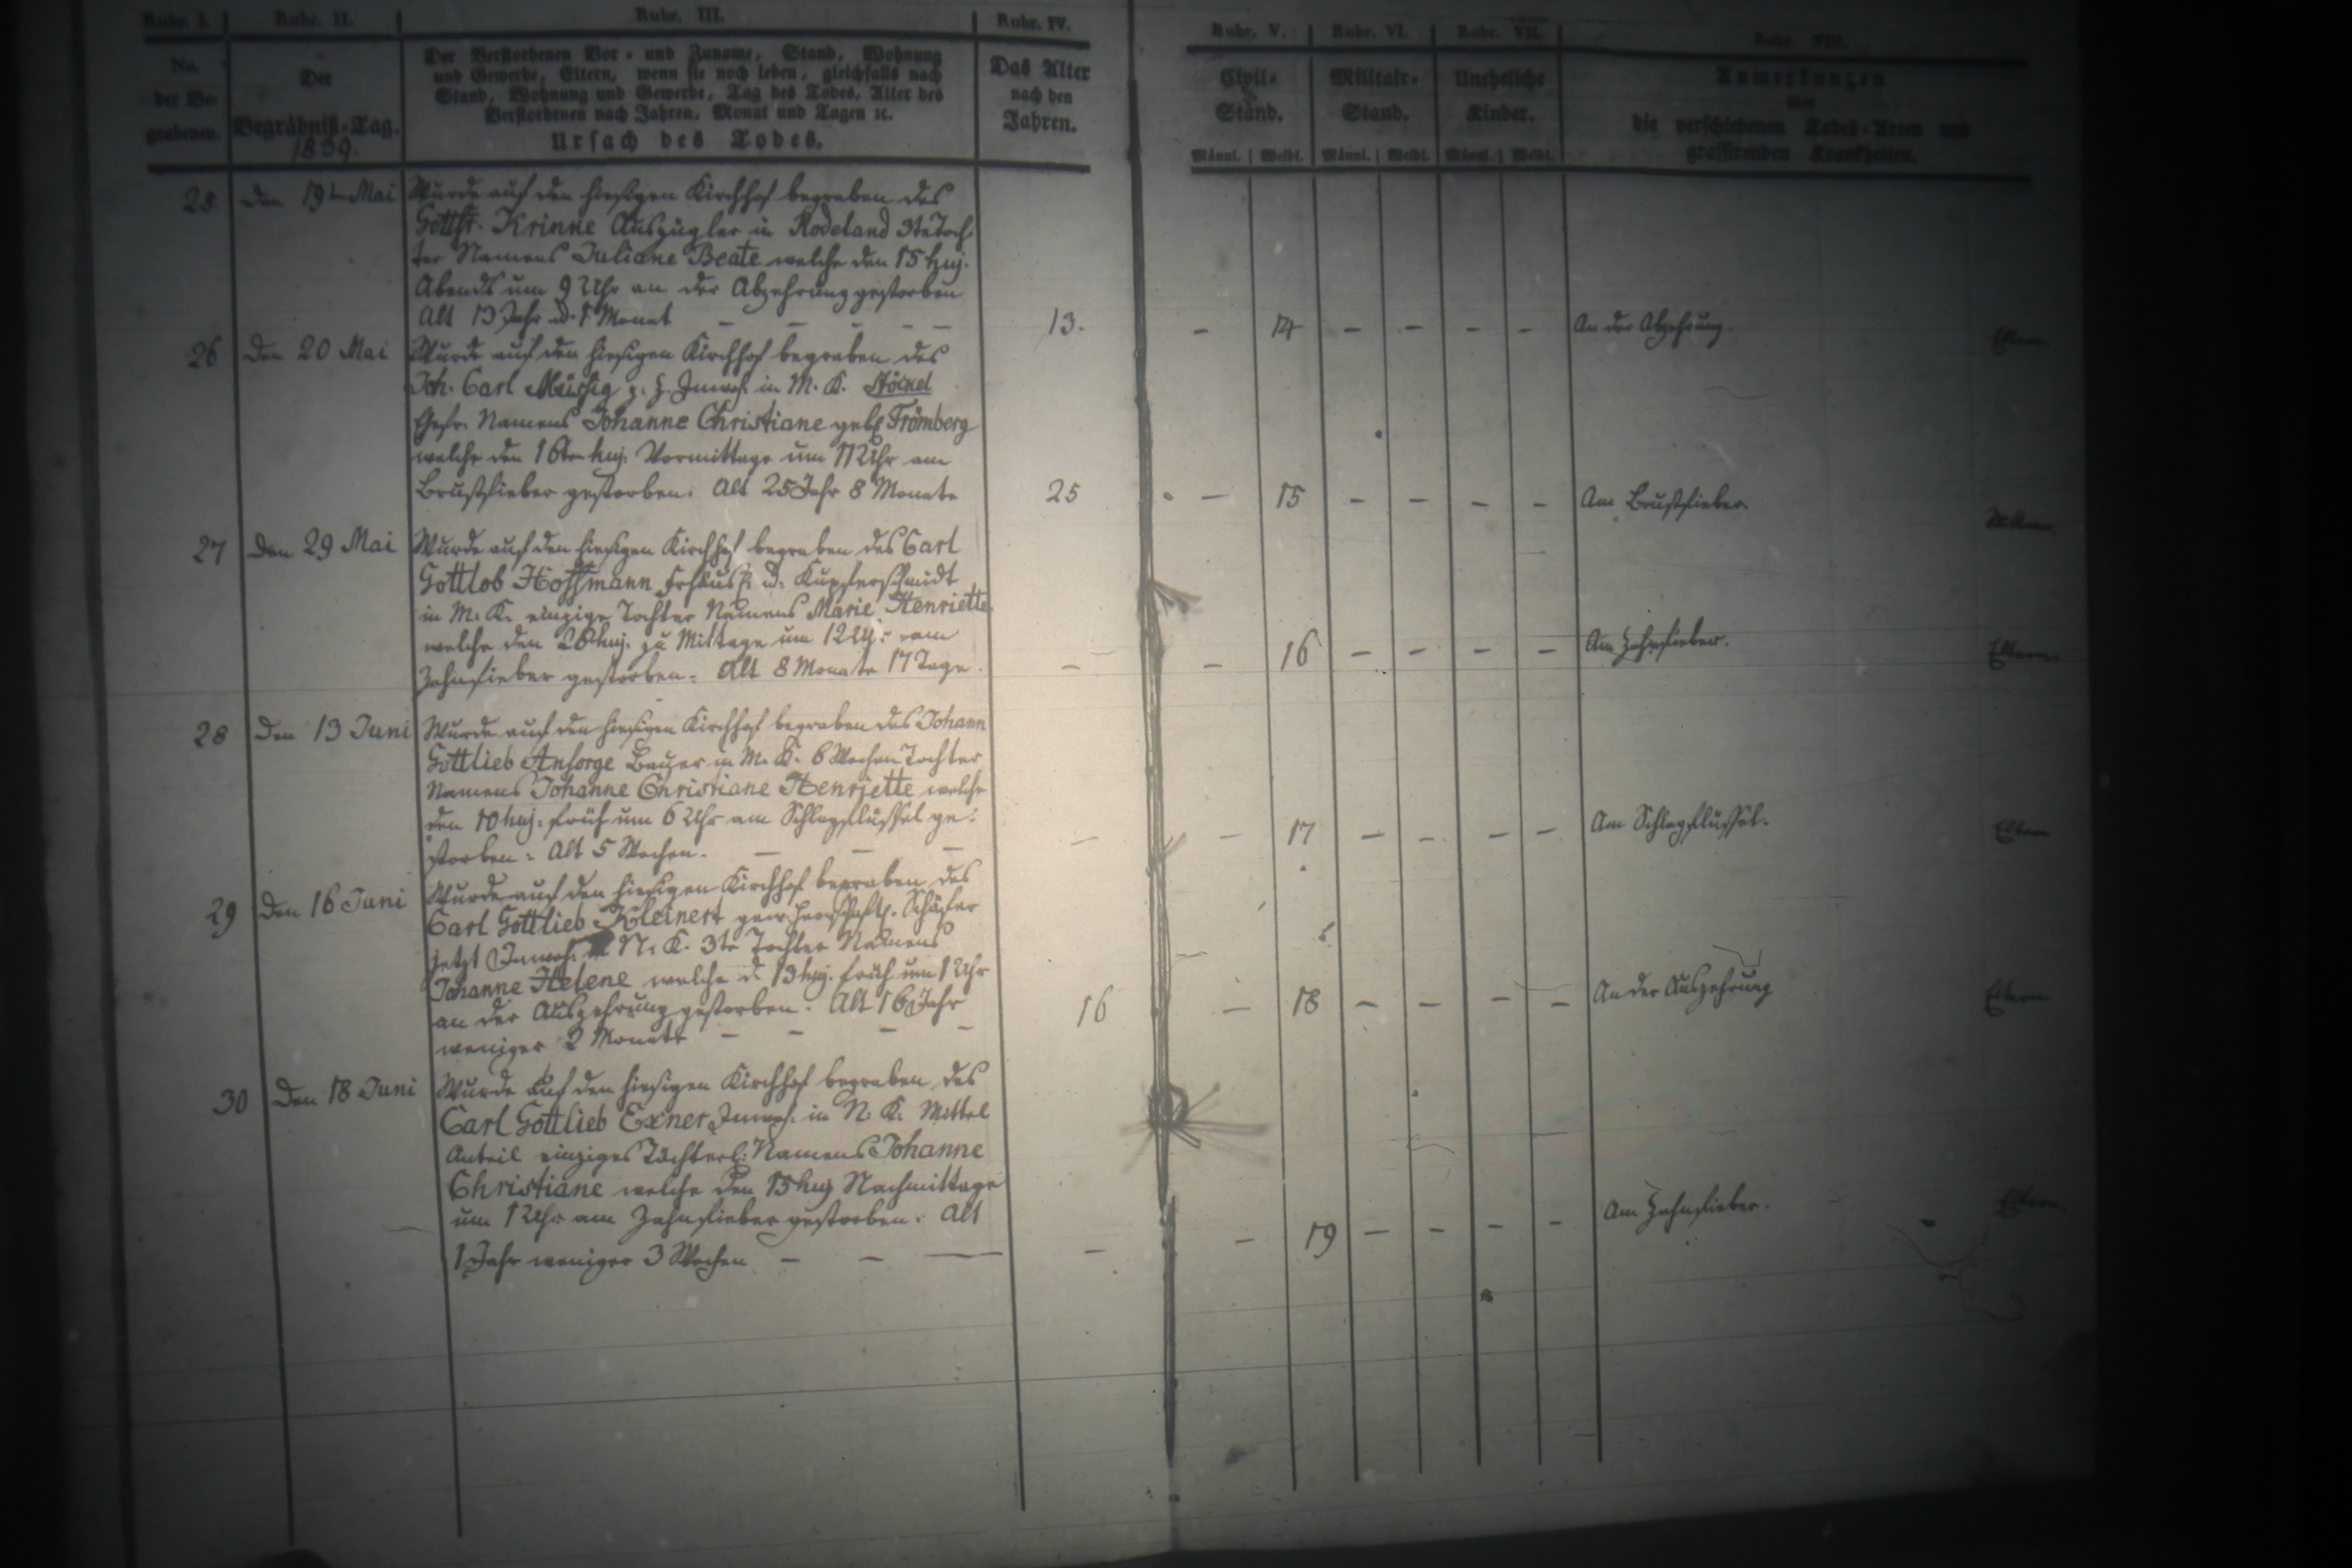 Rubr. I. Rubr. II. Rubr. III. Rubr. IV. Rubr. V. Rubr. VI. Rubr. VII. Rubr. VIII.
No. der Be-grabenen.
Der Begräbniß-Tag. 1839.
Der Verstorbenen Vor- und Zuname, Stand, Wohnung
und Gewerbe, Eltern, wenn sie noch leben, gleichfalls nach
Stand, Wohnung und Gewerbe, Tag des Todes, Alter des
Verstorbenen nach Jahren, Monat und Tagen ꝛc.
Ursach des Todes.
Das Alter nach den Jahren.
Civil-Stand.
Militair-Stand.
Uneheliche Kinder.
Anmerkungen
über
die verschiedenen Todes-Arten und
grassirenden Krankheiten.
Männl. Weibl. Männl. Weibl. Männl. Weibl.
25 Den 19ten Mai Wurde auf den hiesigen Kirchhof begraben des
Gottfr. Krinne Auszügler in Rodeland 3te Toch-
ter Namens Juliane Beate welche den 15 huj.
Abends um 9 Uhr an der Abzehrung gestorben
Alt 13 Jahr u. 1 Monat – – – – – 13. – 14 – – – – An der Abzehrung. Eltern
26 Den 20 Mai Wurde auf den hiesigen Kirchhof begraben des
Joh. Carl z. Z. Inwoh. in M. K.
Ehefr. Namens Johanne Christiane geb. Fromberg
welche den 16ten huj. Vormittags um 11 Uhr am
Brustfieber gestorben. Alt 25 Jahr 8 Monate 25 – 15 – – – – Am Brustfieber
27 Den 29 Mai Wurde auf den hiesigen Kirchhof begraben des Carl
Gottlob Hoffmann u. Kupferschmidt
in M. K. einzige Tochter Namens Marie Henriette
welche den 26 huj. zu Mittage um 12 Uhr am
Zahnfieber gestorben. Alt 8 Monate 17 Tage. – – 16 – – – – Am Zahnfieber. Eltern
28 Den 13 Juni Wurde auf den hiesigen Kirchhof begraben des Johann
Gottlieb Ansorge Bauer in M. K. 6 Wochen Tochter
Namens Johanne Christiane Henrjette welche
den 10 huj. früh um 6 Uhr am Schlagflüssel ge-
storben. Alt 5 Wochen. – – – – – 17 – – – – Am Schlagflüssel. Eltern
29 Den 16 Juni Wurde auf den hiesigen Kirchhof begraben des
Carl Gottlieb Kleinert gew. herrschaftl. Schäfer
jetzt Inwoh. N. K. 3te Tochter Namens
Johanne Helene welche d. 13 huj. früh um 1 Uhr
an der Auszehrung gestorben. Alt 16 Jahr
weniger 2 Monate – – – – 16 – 18 – – – – An der Auszehrung Eltern
30 Den 18 Juni Wurde auf den hiesigen Kirchhof begraben des
Carl Gottlieb Exner Inwoh. in N. K. Mittel
Anteil einziges Töchterl. Namens Johanne
Christiane welche den 15 huj Nachmittags
um 1 Uhr am Zahnfieber gestorben. Alt
1 Jahr weniger 3 Wochen – – — – – 19 – – – – Am Zahnfieber. Eltern